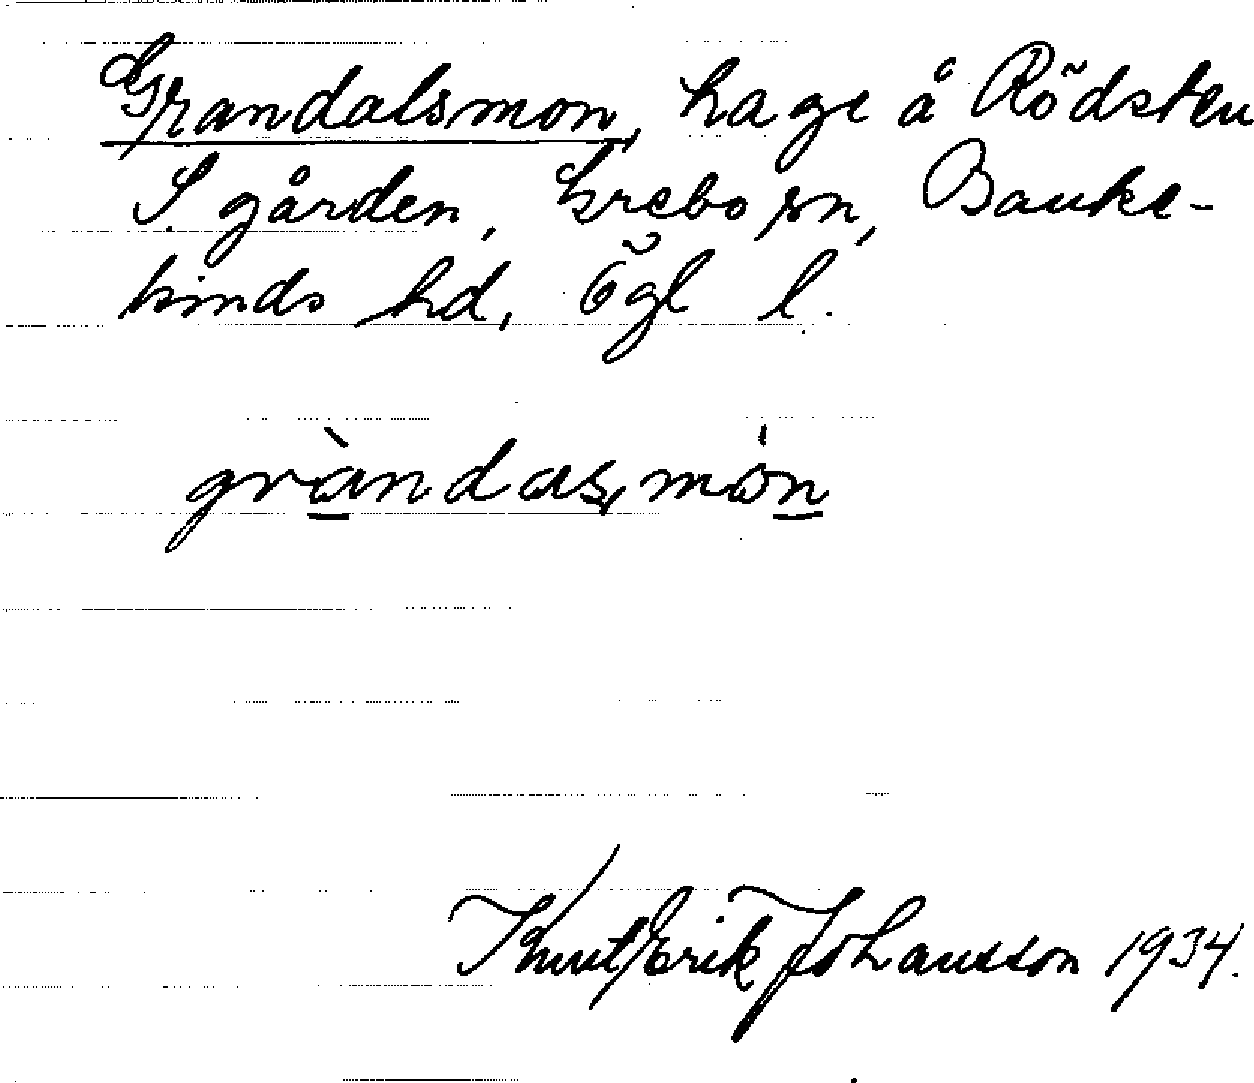 Grandalsmon, hage å Rödsten
S. gården, Grebo sn, Banke-
kinds hd, Ögl l.
gràndas,món
Knut Erik Johansson 1934.